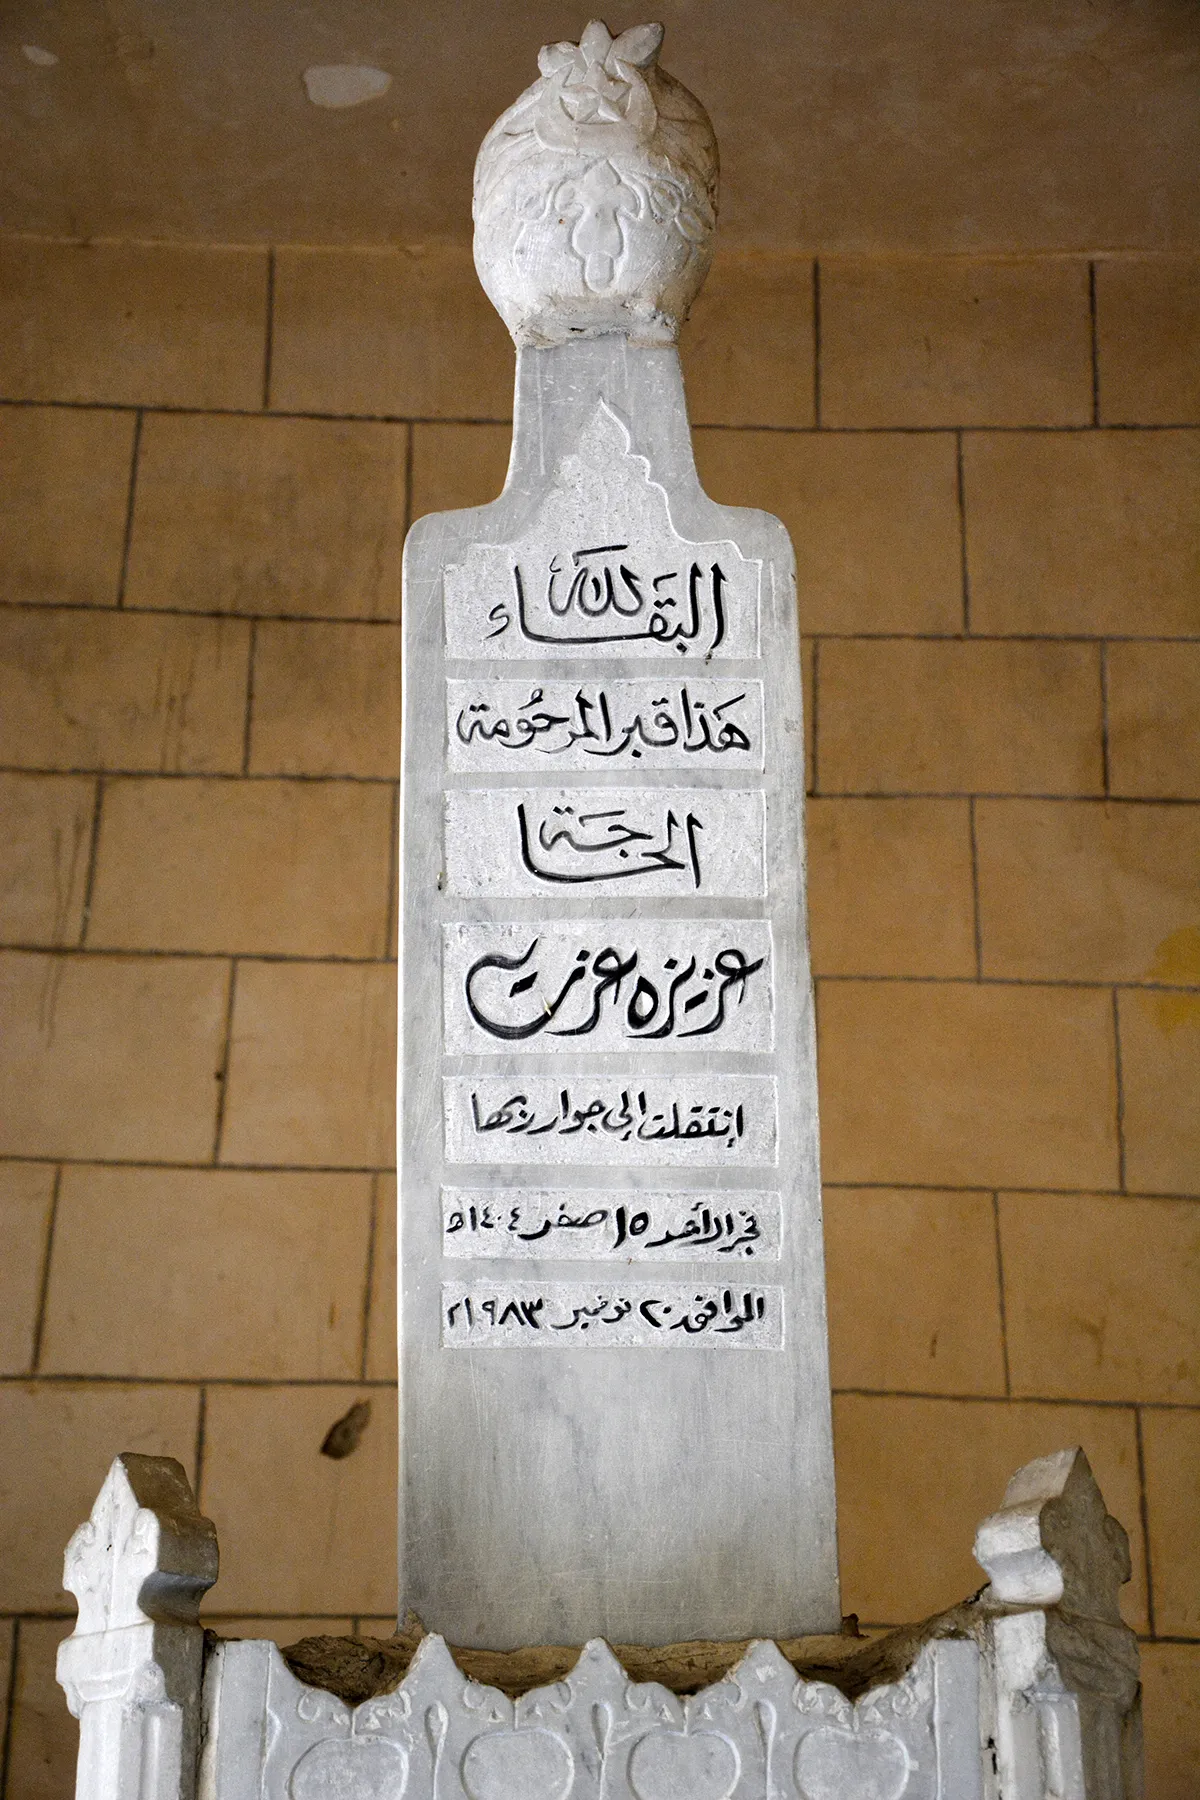 البقاء لله
هذا قبر المرحُومة
الحاجة
عزيزه عزت
إنتقلت إلى جوار ربها
فجر الأحد ١٥ صفر ١٤٠٤ه
الموافق ٢٠ نوفمبر ١٩٨٣م